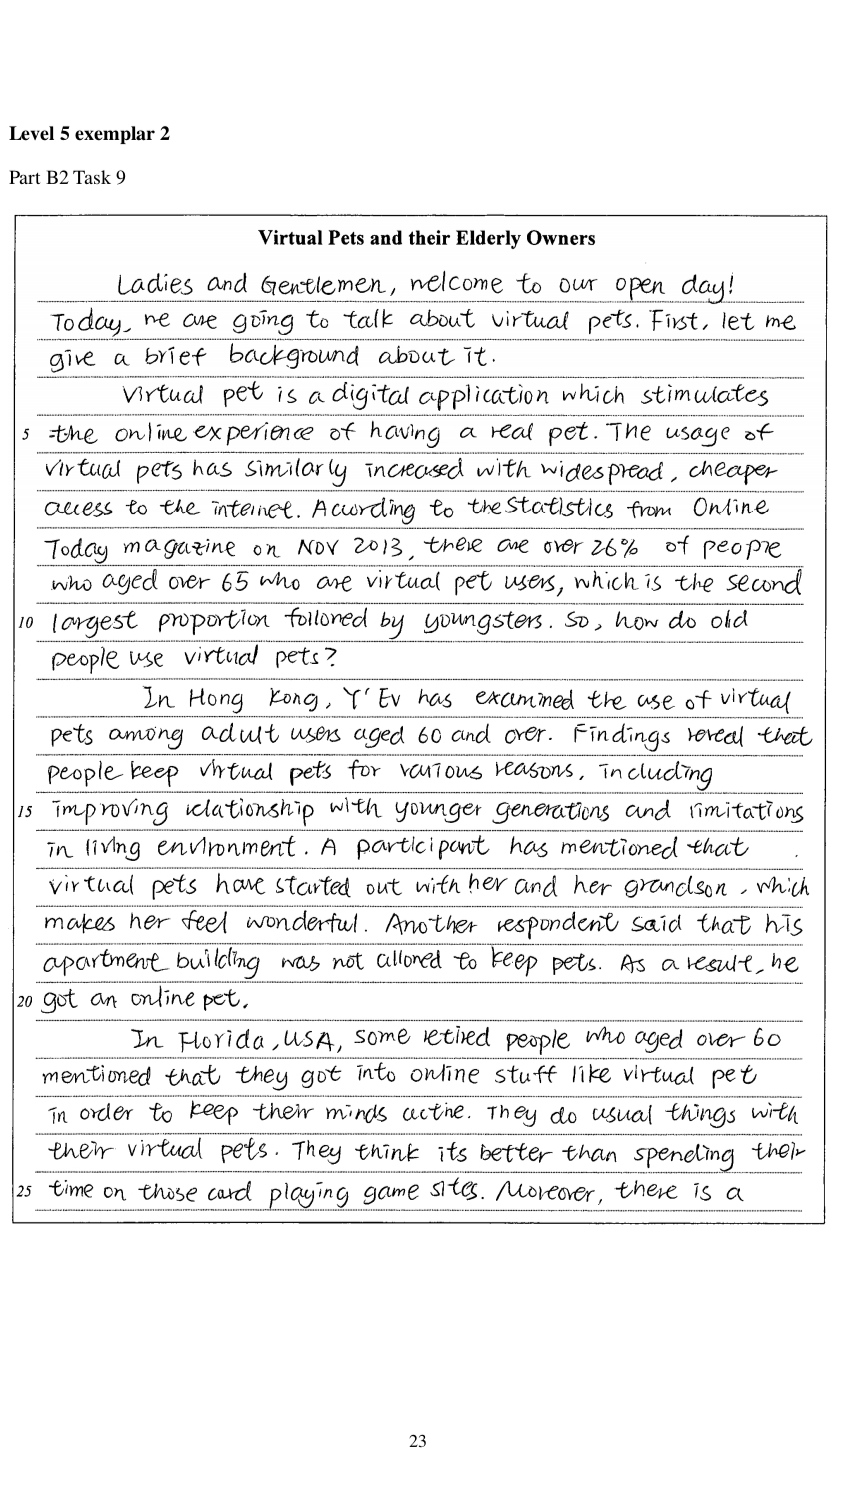 Level 5 exemplar 2
Part B2 Task 9
Virtual Pets and their Elderly Owners
Ladies and Gentlemen, welcome to our open day!
Today, we are going to talk about virtual pets. First, let me
give a brief background about it.
Virtual pet is a digital application which stimulates
5 the online experience of having a real pet. The usage of
virtual pets has similarly increased with widespread, cheaper
access to the internet. According to the statistics from Online
Today magazine on NOV 2013, there are over 26% of people
who aged over 65 who are virtual pet users, which is the second
10 largest proportion followed by youngsters. So, how do old
people use virtual pets?
In Hong Kong, Y'Ev has examined the use of virtual
pets among adult users aged 60 and over. Findings reveal that
people keep virtual pets for various reasons, including
15 improving relationship with younger generations and limitations
in living environment. A participant has mentioned that
virtual pets have started out with her and her grandson, which
makes her feel wonderful. Another respondent said that his
apartment building was not allowed to keep pets. As a result, he
20 got an online pet.
In Florida, USA, some retired people who aged over 60
mentioned that they got into online stuff like virtual pet
in order to keep their minds active. They do usual things with
their virtual pets. They think its better than spending their
25 time on those card playing game sites. Moreover, there is a
23